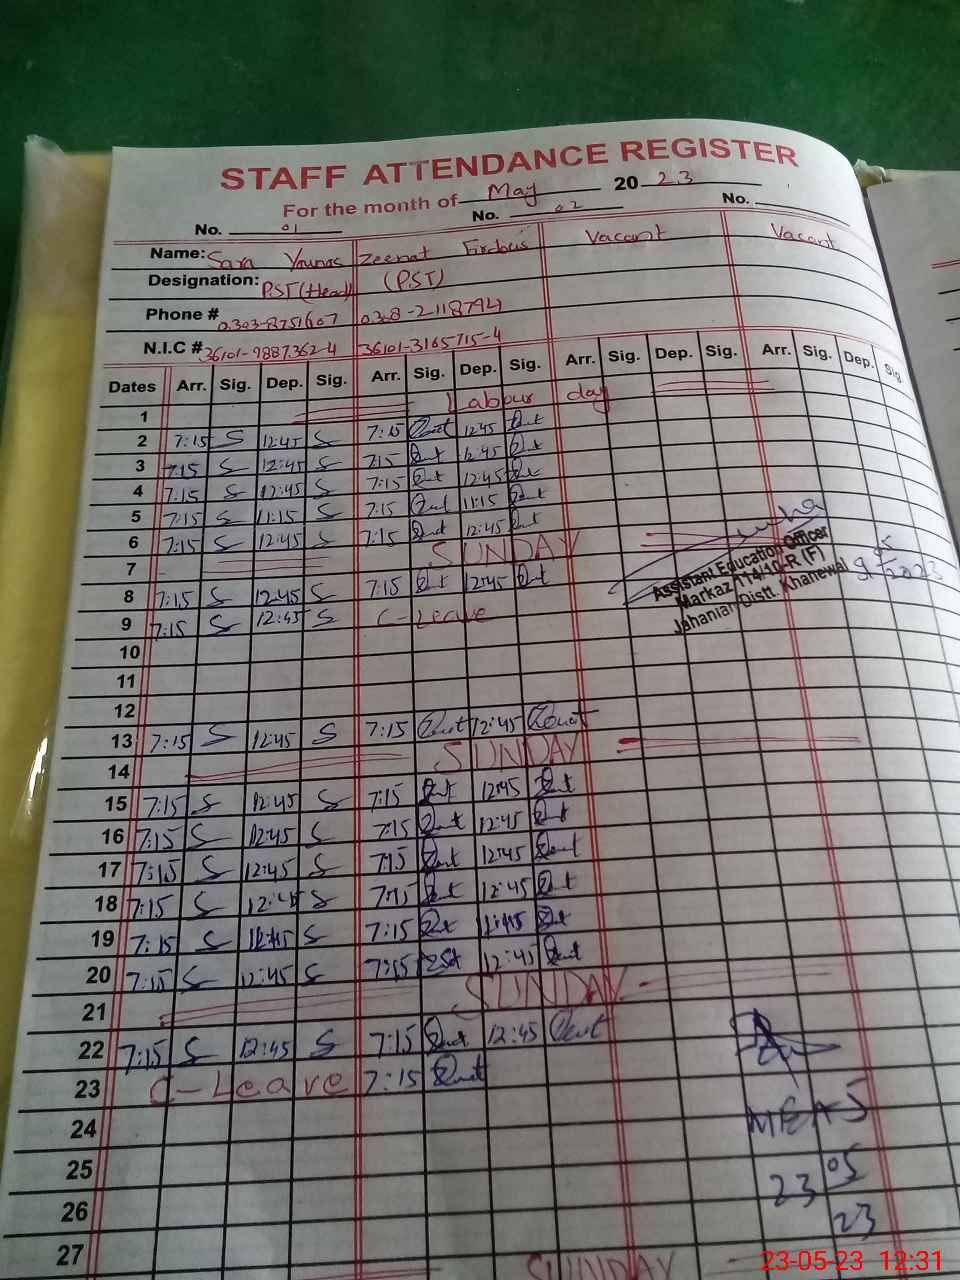 STAFF ATTENDANCE REGISTER
For the month of May 20 23
No. 01 No. 02 No.
Name: Sara Younas Zeenat Firdous Vacant Vacant
Designation: PST(Head) (PST)
Phone # 0303-8751607 0308-2118794
N.I.C # 36101-9887362-4 36101-3165715-4
Dates Arr. Sig. Dep. Sig. Arr. Sig. Dep. Sig. Arr. Sig. Dep. Sig. Arr. Sig. Dep. Sig
1 Labour day
2 7:15 S 12:45 S 7:15 12:45
3 7:15 S 12:45 S 7:15 12:45
4 7:15 S 12:45 S 7:15 12:45
5 7:15 S 11:15 S 7:15 11:15
6 7:15 S 12:45 S 7:15 12:45
7 SUNDAY
8 7:15 S 12:45 S 7:15 12:45
9 7:15 S 12:45 S C-Leave
Assistant Education Officer
Markaz 114/10-R (F)
Jahanian Distt. Khanewal
10
11
12
13 7:15 S 12:45 S 7:15 12:45
14 SUNDAY
15 7:15 S 12:45 S 7:15 12:45
16 7:15 S 12:45 S 7:15 12:45
17 7:15 S 12:45 S 7:15 12:45
18 7:15 S 12:45 S 7:15 12:45
19 7:15 S S 7:15
20 7:15 S 12:45 S 7:15 12:45
21 SUNDAY
22 7:15 S 12:45 S 7:15 12:45
23 C-Leave 7:15
24 MEA-5
25 23 05
26 23
27 SUNDAY
23-05-23 12:31